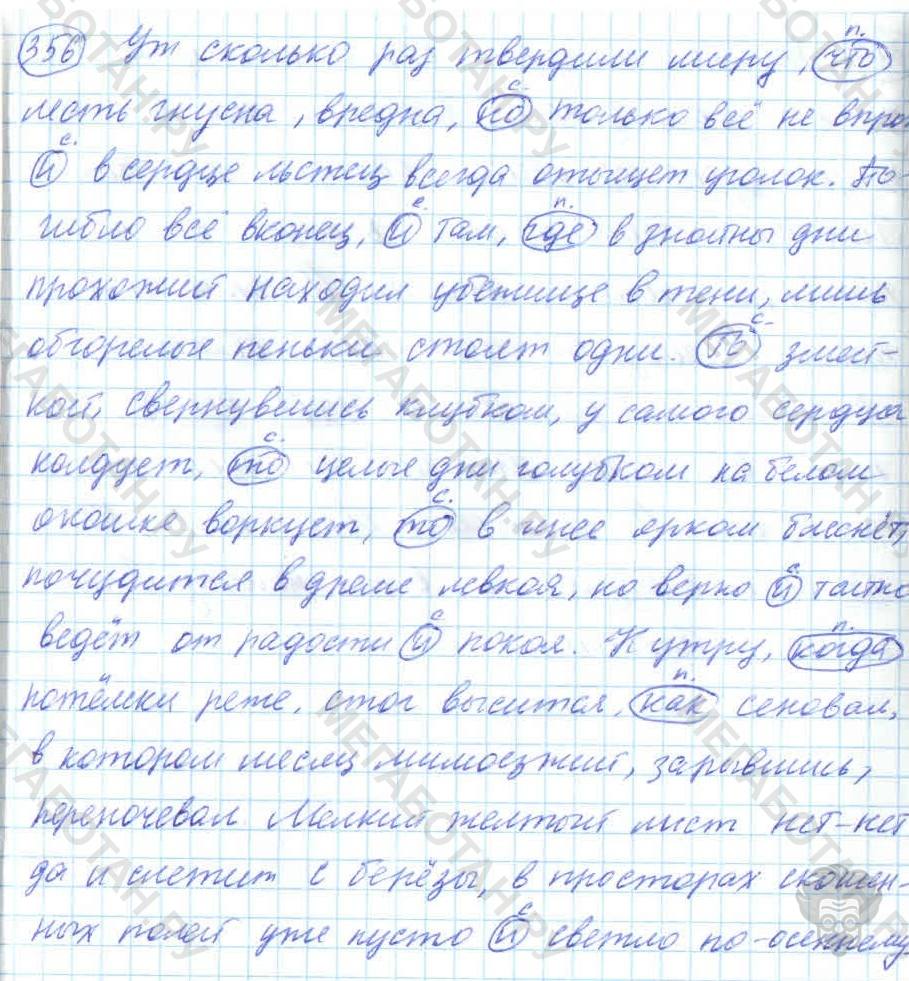 356 Уж сколько раз твердили миру, что
лесть гнусна, вредна, но только всё не впро
и в сердце льстец всегда отыщет уголок. По-
гибло всё вконец, и там, где в знойны дни
прохожий находил убежище в тени, лишь
обгорелые пеньки стоят одни. То змей-
кой, свернувшись клубком, у самого сердца
колдует, то целые дни голубком на белом
окошке воркует, то в инее ярком блеснёт,
почудится в дреме левкоя, но верно и тайно
ведёт от радости и покоя. К утру, когда
потёмки реже, стог высится, как сеновал,
в котором месяц мимоезжий, зарывшись,
переночевал. Мелкий желтый лист нет-нет
да и слетит с берёзы, в просторах скошен-
ных полей уже пусто и светло по-осеннему